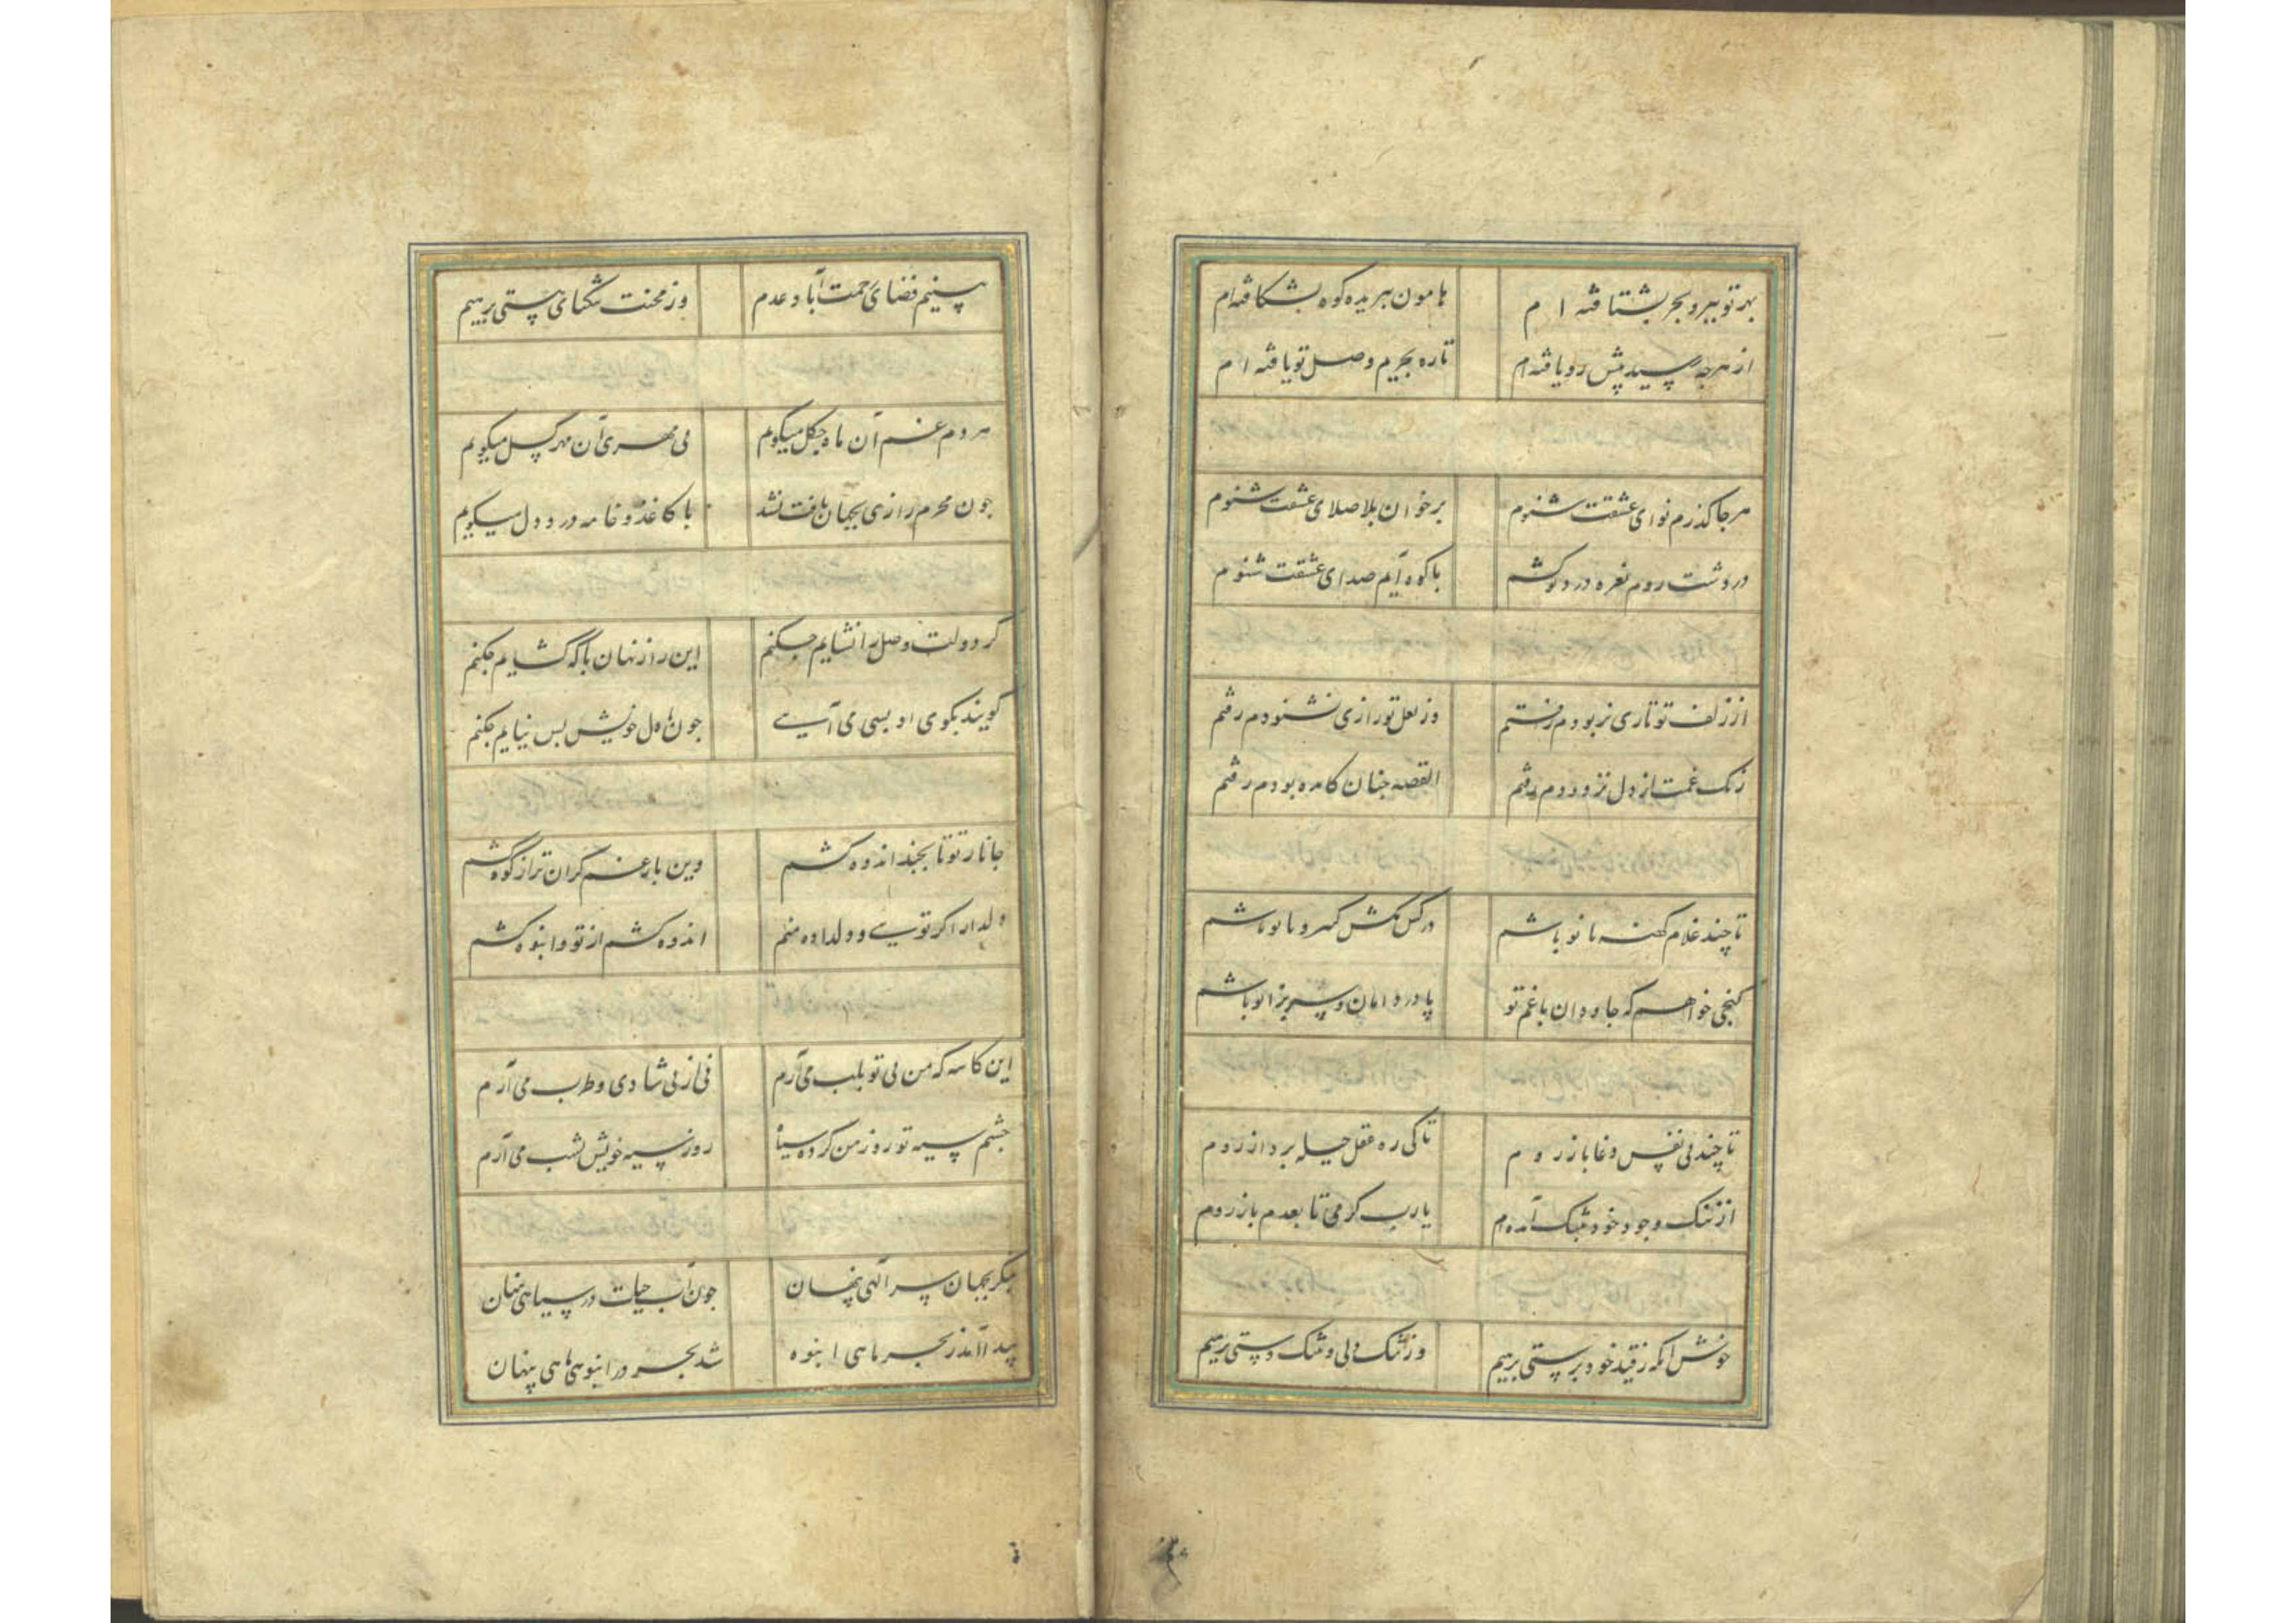 بهر تو ببر و بحر بشتافته ام هامون ببریده کوه بشکافته ام
از هرچه رسید پیش رو یافته ام تا ره بحریم وصل تو یافته ام
هر جا گذرم نوای عشقت شنوم بر خوان بلا صلای عشقت شنوم
در دشت روم نعره درد تو کشم با کوه آیم صدای عشقت شنوم
از زلف تو تاری نربودم رفتم وز لعل تو رازی نشنودم رفتم
زنک غمت از دل نزدودم رفتم القصه جنان کامده بودم رفتم
تا چند غلام کهنه یا نو باشم در کش مکش کهر و یا نو باشم
کنجی خواهم که جاودان با غم تو پا در دامان و سر بزانو باشم
تا چند پی نفس دغا باز روم تا کی ره عقل حیله پرداز روم
از ننک وجود خود بتنک آمده ام یا رب کرمی تا بعدم باز روم
خوش آنکه ز قید خودپرستی برهیم وز تنک دلی و تنک دستی برهیم
بینیم فضای رحمت آباد عدم وز محنت تنکنای هستی برهیم
هر دم غم آن ماه چکل میکویم بی مهری آن مهر کسل میکویم
جون محرم رازی بجهان یافت نشد با کاغذ و خامه درد دل میکویم
کر دولت وصل را نشایم جکنم این راز نهان با که کشایم جکنم
کویند بکوی او بسی می آیی جون با دل خویش بس نیایم جکنم
جانا ز تو تا بچند اندوه کشم وین بار غم کران تر از کوه کشم
دلدار اکر تویی و دلداده منم اندوه کشم از تو و انبوه کشم
این کاسه که من بی تو بلب می آرم نی از پی شادی و طرب می آرم
جشم سیه تو روز من کرده سیاه روز سیه خویش بشب می آرم
بنکر بجهان سر الهی پنهان جون آب حیات در سیاهی پنهان
پیدا آمد ز بحر ماهی انبوه شد بحر در انبوهی ماهی پنهان